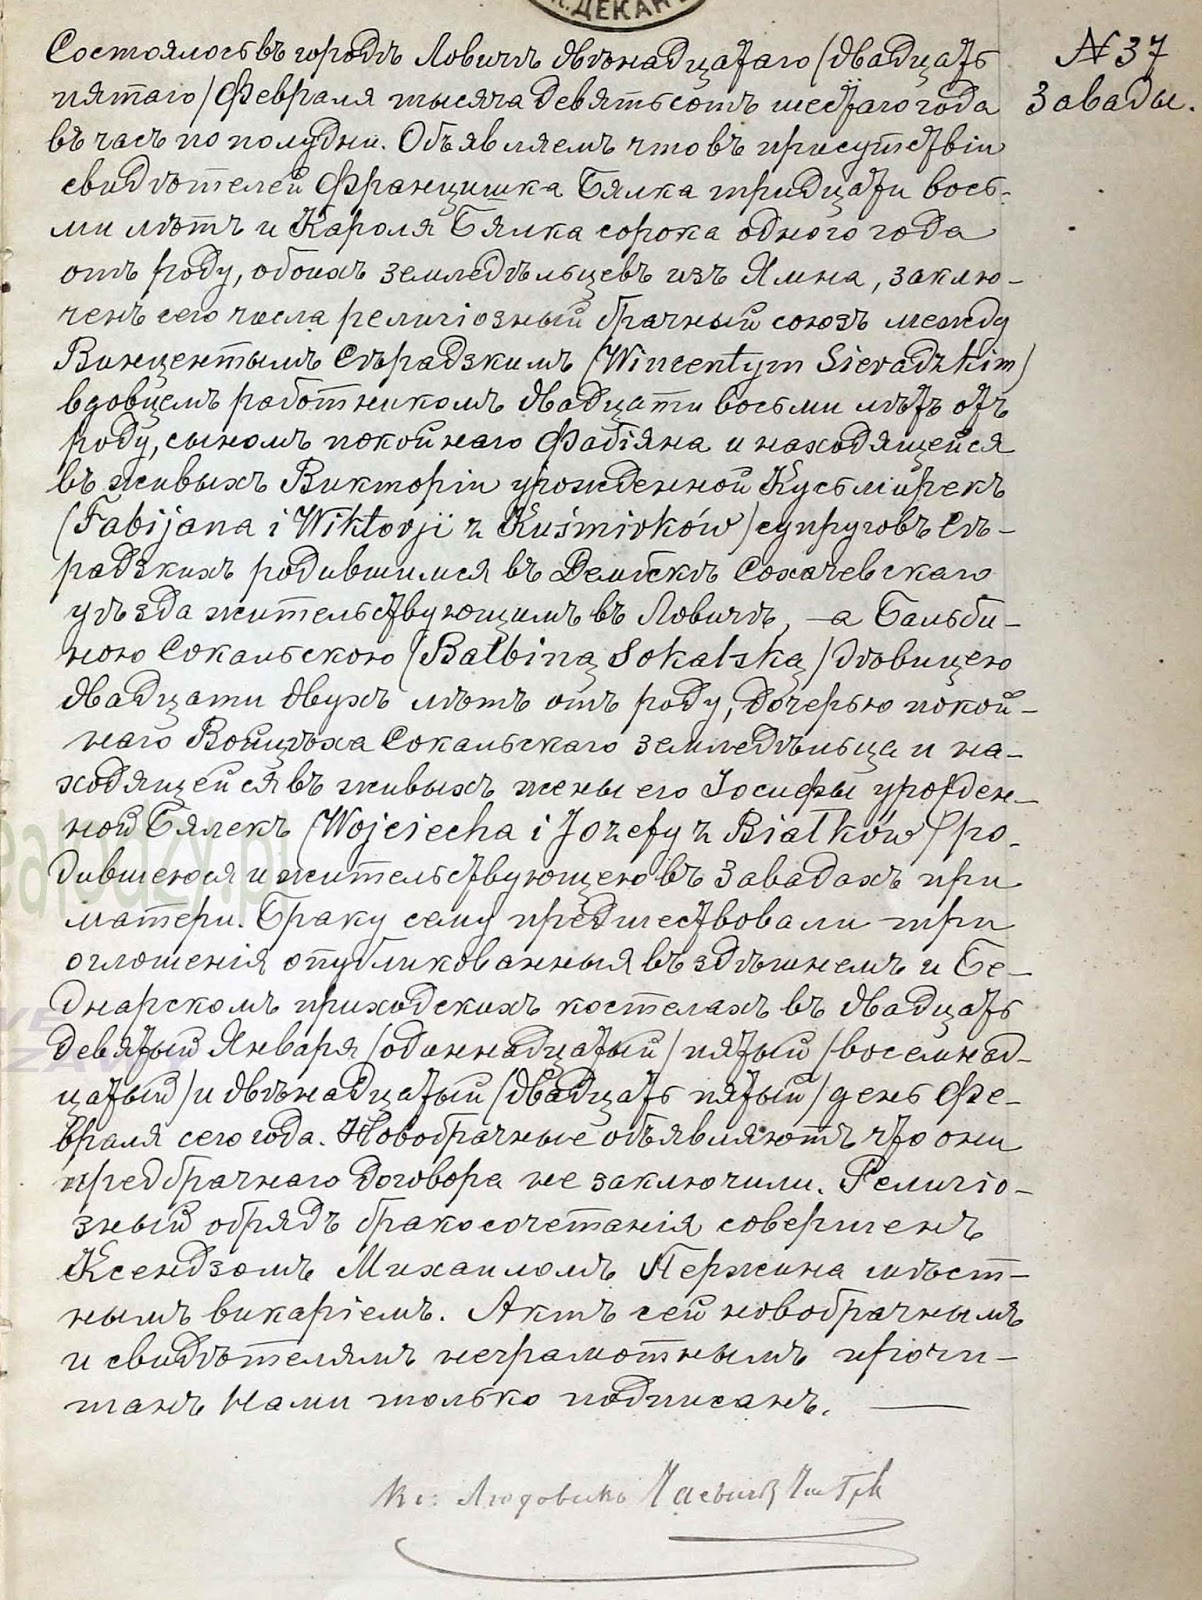 ДЕКАН
Состоялось въ городѣ Ловичѣ двѣнадцатаго /двадцать
№ 37
пятаго/ Февраля тысяча девятьсотъ шестаго года
Завады.
въ часъ по полудни. Объявляемъ что въ присутствіи
свидѣтелей Францишка Бялка тридцати вось-
ми лѣтъ и Кароля Бялка сорока одного года
отъ роду, обоихъ земледѣльцевъ изъ Ямна, заклю-
ченъ сего числа религіозный брачный союзъ между
Винцентымъ Сѣрадзкимъ (Wincentym Sieradzkim)
вдовцемъ работникомъ двадцати восьми лѣтъ отъ
роду, сыномъ покойнаго Фабіяна и находящейся
въ живыхъ Викторіи урожденной Кусьмирекъ
(Fabijana i Wiktorji z Kuśmirków) супруговъ Сѣ-
радзкихъ родившимся въ Дембскѣ Сохачевскаго
уѣзда жительствующимъ въ Ловичѣ, — а Бальби-
ною Сокальскою (Balbiną Sokalską) дѣвицею
двадцати двухъ лѣтъ отъ роду, дочерью покой-
наго Войцѣха Сокальскаго земледѣльца и на-
ходящейся въ живыхъ жены его Іосифы урожден-
ной Бялекъ (Wojciecha i Jozefy z Białków) ро-
дившеюся и жительствующею въ Завадахъ при
матери. Браку сему предшествовали три
оглошенія опубликованныя въ здѣшнемъ и Бе-
днарскомъ приходскихъ костелахъ въ двадцать
девятый Января /одиннадцатый/ пятый /восемнад-
цатый/ и двѣнадцатый /двадцать пятый/ день Фе-
враля сего года. Новобрачные объявляютъ что они
предбрачнаго договора не заключили. Религіо-
зный обрядъ бракосочетанія совершенъ
Ксендзомъ Михаиломъ Пержина мѣст-
нымъ викаріемъ. Актъ сей новобрачнымъ
и свидѣтелямъ неграмотнымъ прочи-
танъ Нами только подписанъ. —
Кс: Людовикъ